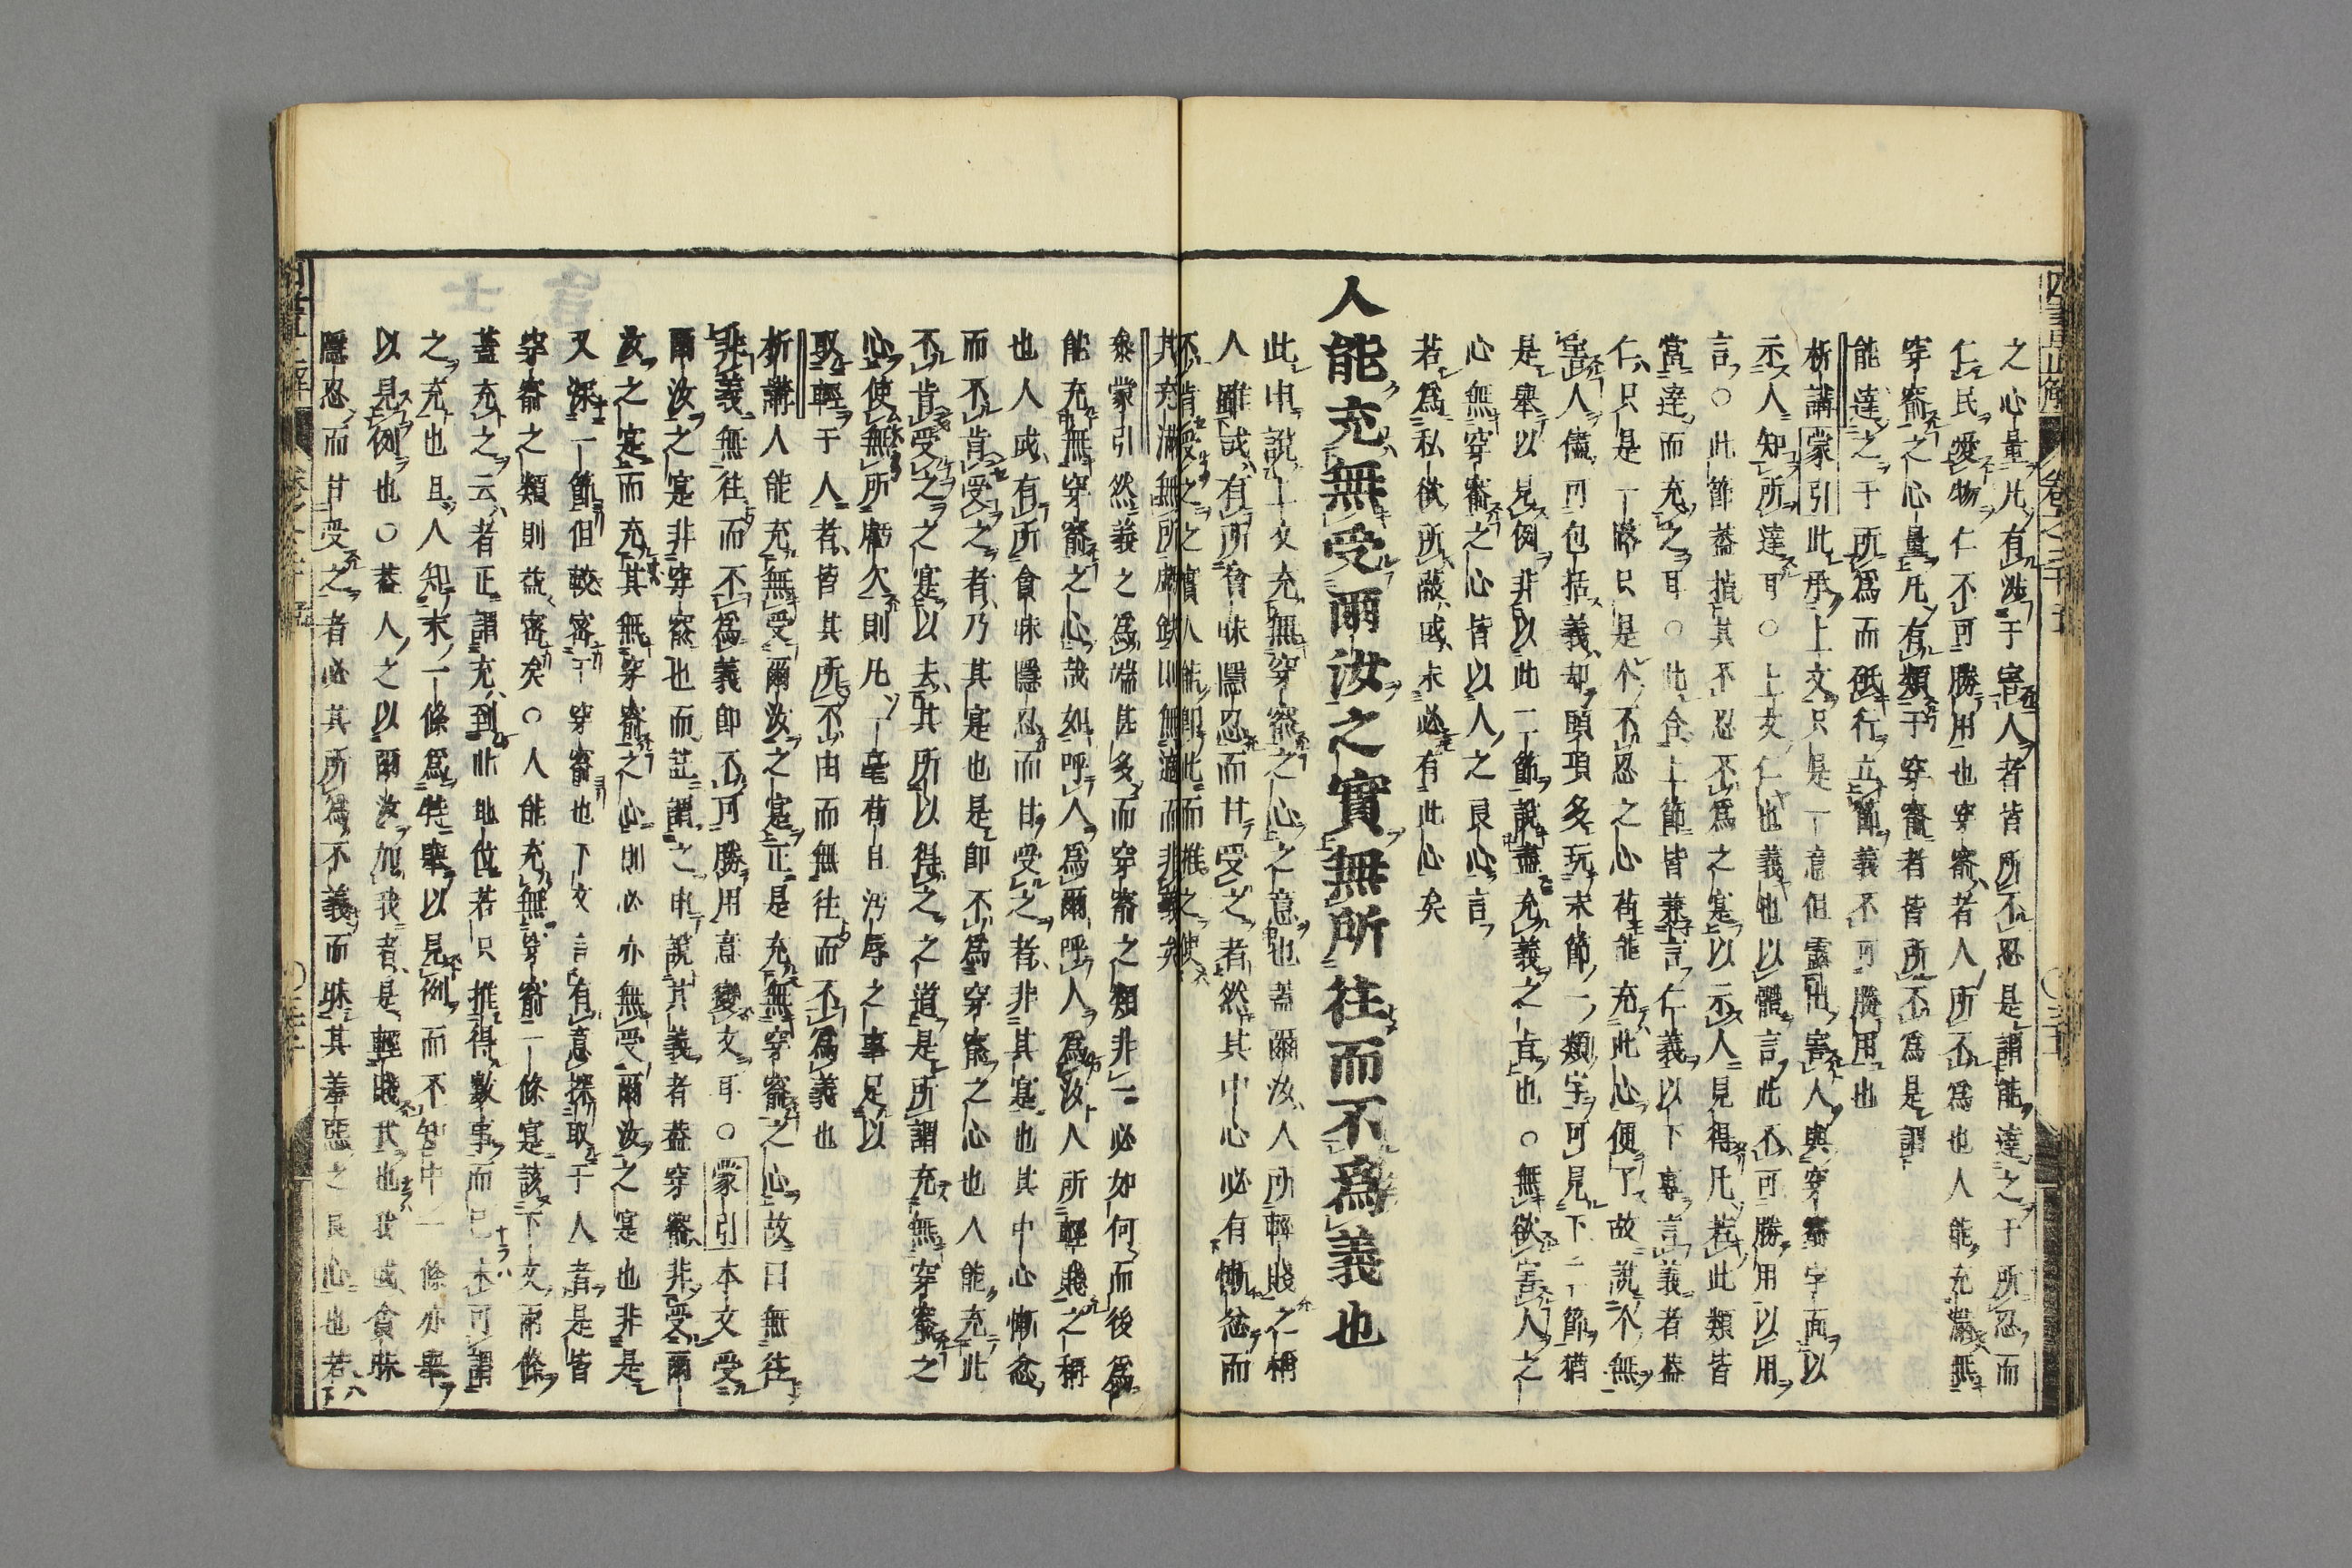 之心量凡有涉于害人者皆所不忍是謂能達之于所忍而
仁民愛物仁不可勝用也穿窬者人所不為也人能充滿無
穿窬之心量凡有類于穿窬者皆所不為是謂
能達之于所為而砥行立節義不可勝用也
析講蒙引此承上文只是一意但露出害人與穿窬字面以
示人知所達耳○上文仁也義也以體言此不可勝用以用
言○此節蓋指其不忍不為之寔以示人見得凡若此類皆
當達而充之耳○此合上節皆兼言仁義以下專言義者蓋
仁只是一路只是个不忍之心苟能充此心便了故說个無
害人儘可包括義却頭項多玩末節一類字可見下二節猶
是舉以見例非以此二節說盡充義之旨也○無欲害人之
心無穿窬之心皆以人之良心言
若為私欲所蔽或未必有此心矣
人能充無受爾汝之實無所往而不為義也
此申說上文充無穿窬之心之意也蓋爾汝人所輕賤之稱
人雖或有所貪昧隱忍而甘受之者然其中心必有慚忿而
不肯受之之實人能即此而推之使
其充滿無所虧缺則無適而非義矣
蒙引然義之為端甚多而穿窬之類非一必如何而後為
能充無穿窬之心哉如呼人為爾呼人為汝人所輕賤之稱
也人或有所貪昧隱忍而甘受之者非其寔也其中心慚忿
而不肯受之者乃其寔也是即不為穿窬之心也人能充此
不肯受之之寔以去其所以得之之道是所謂充無穿窬之
心使無所虧欠則凡一毫苟且汚辱之事足以
取輕于人者皆其所不由而無往而不為義也
析講人能充無受爾汝之寔正是充無穿窬之心故曰無往
非義無往而不為義即不可勝用意變文耳○蒙引本文受
爾汝之寔非穿窬也而註謂之申說其義者蓋穿窬非受爾
汝之寔而充其無穿窬之心則必亦無受爾汝之寔也非是
又深一節但較密于穿窬也下文言有意探取于人者是皆
穿窬之類則益密矣○人能充無穿窬一條寔該下文兩條
蓋充之云者正謂充到此地位若只推得數事而已未可謂
之充也且人知末一條為特舉以見例而不知中一條亦舉
以見例也○蓋人之以爾汝加我者是輕賤我也我或貪昧
隱忍而甘受之者必其所為不義而昧其羞惡之良心也若